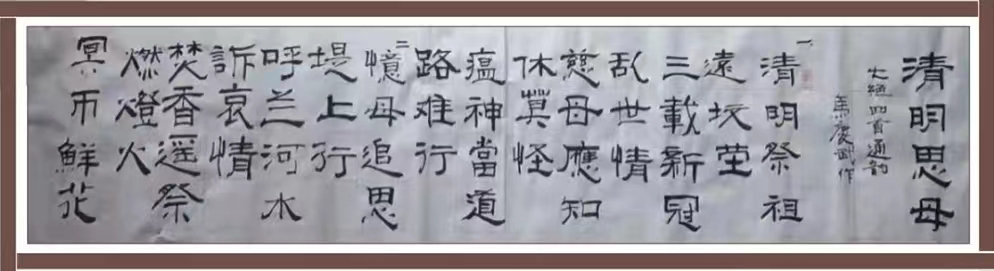 清明思母
七絕四首通韵
慶作
一、
清明祭祖
遠坟茔
三載新冠
乱世情
慈母應知
休莫怪
瘟神當道
路难行
二
憶母追思
堤上行
呼兰河水
訴哀情
焚香遥祭
燃燈火
冥币鮮花